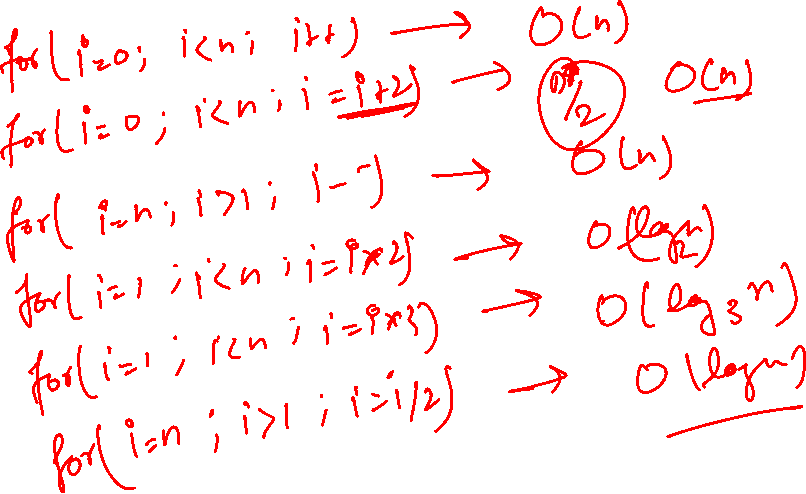 for(i=0; i<n; i++) → O(n)
for(i=0; i<n; i=i+2) → n/2 O(n)
for(i=n; i>1; i--) → O(n)
for(i=1; i<n; i=i*2) → O(log₂n)
for(i=1; i<n; i=i*3) → O(log₃n)
for(i=n; i>1; i=i/2) → O(logn)